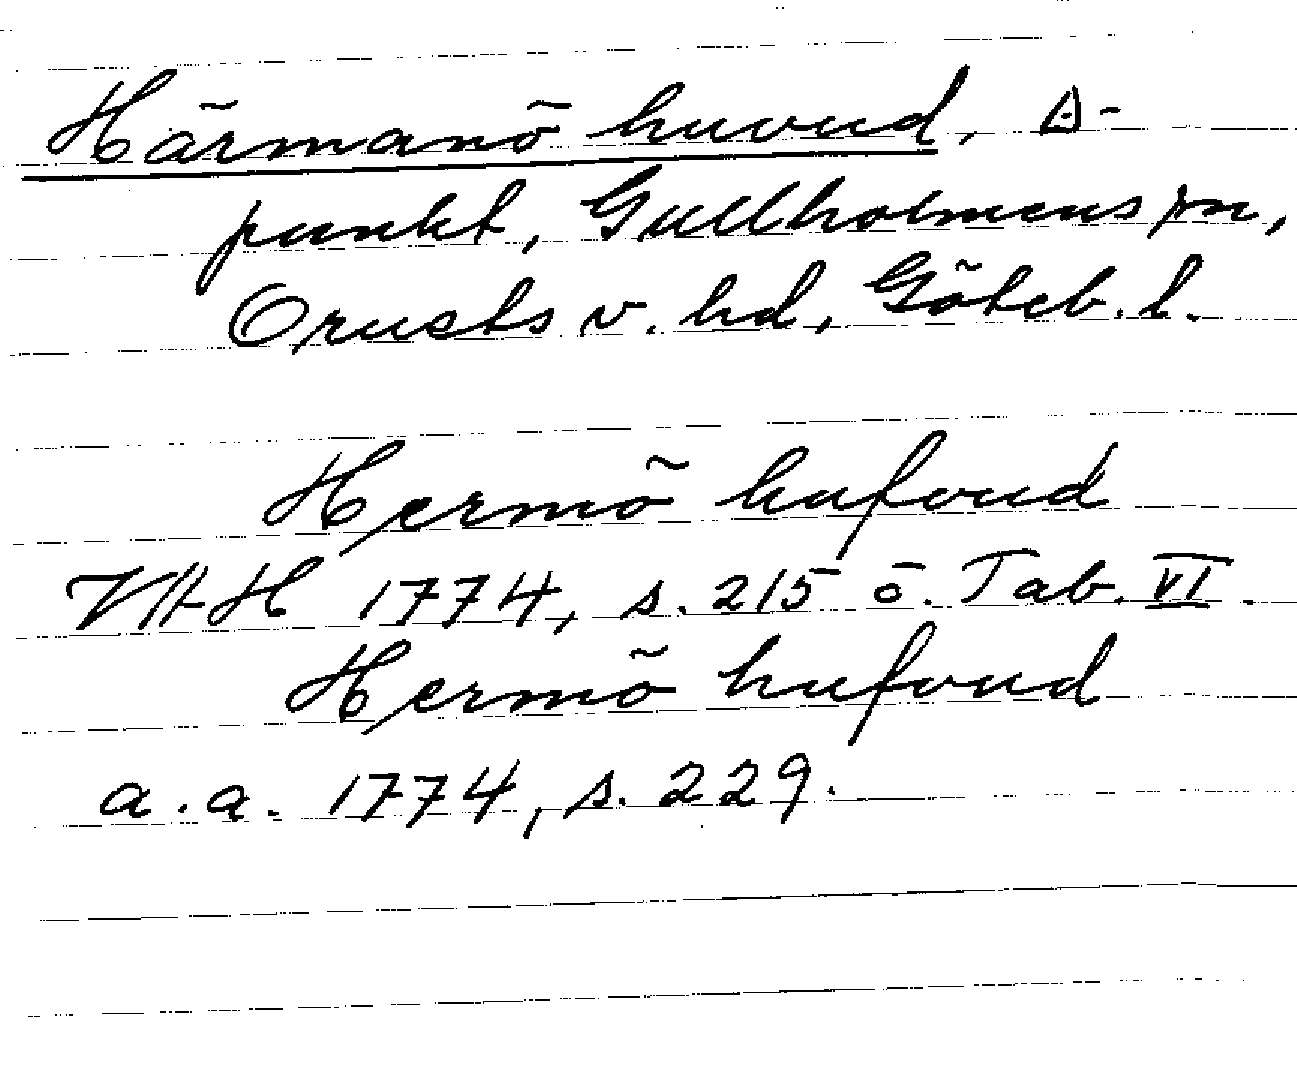 Härmanö huvud, Δ-
punkt, Gullholmens sn,
Orusts v. hd, Göteb. l.
Hermö hufvud
VAH 1774, s. 215 o. Tab. VI.
Hermö hufvud
a.a. 1774, s. 229.